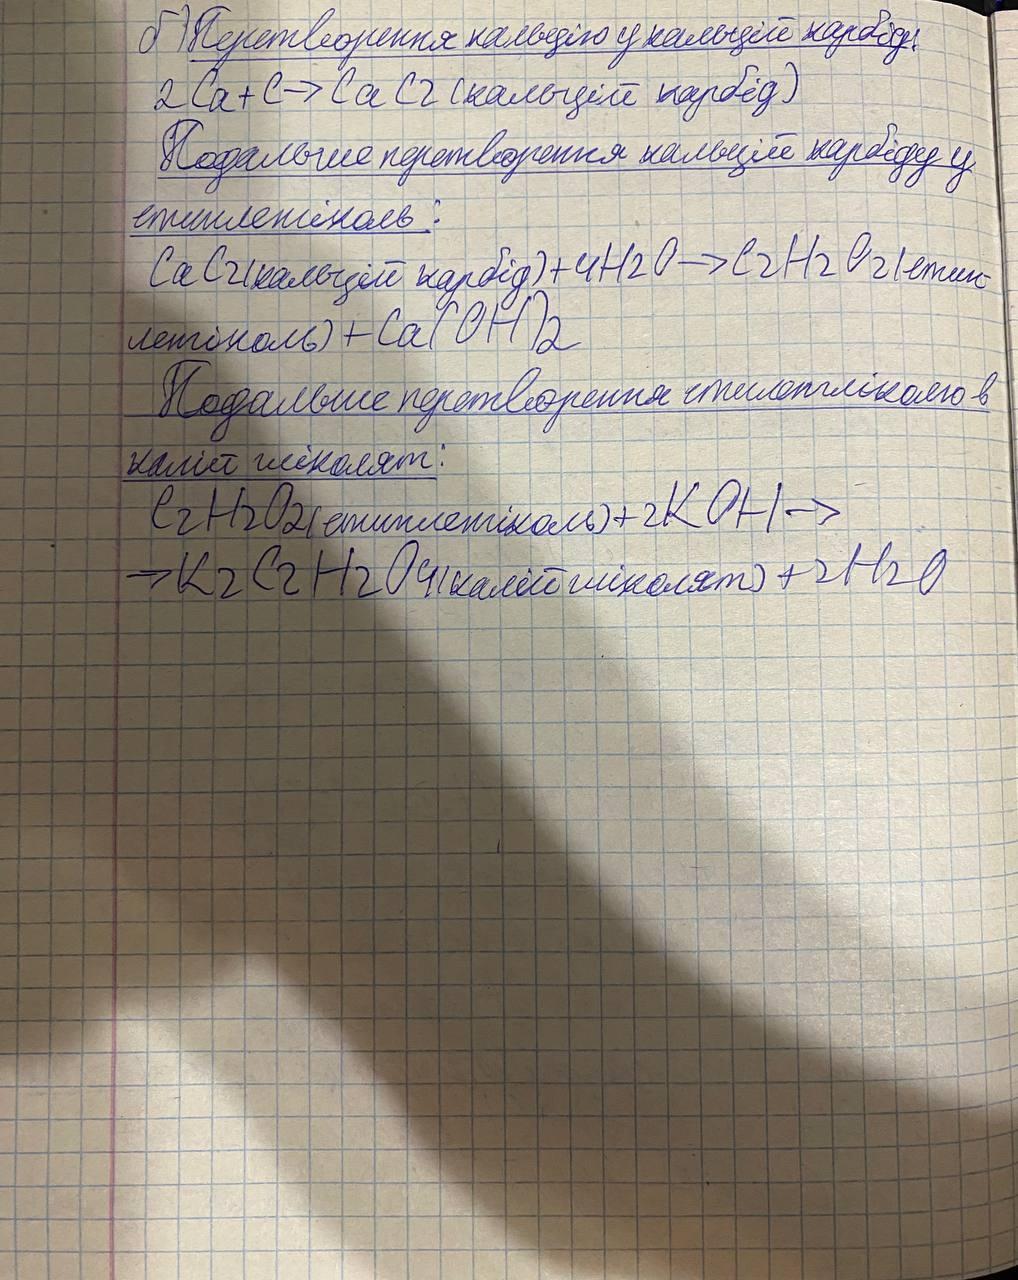 б) Перетворення кальцію у кальцій карбід:
2Ca+C→CaC2(кальцій карбід)
Подальше перетворення кальцій карбіду у
етиленгліколь:
CaC2(кальцій карбід)+4H2O→C2H2O2(етин
ленгіколь)+Ca(OH)2
Подальше перетворення етиленгліколю в
калій гліколят:
C2H2O2(етиленгліколь)+2KOH→
→K2C2H2O4(калій гліколят)+2H2O